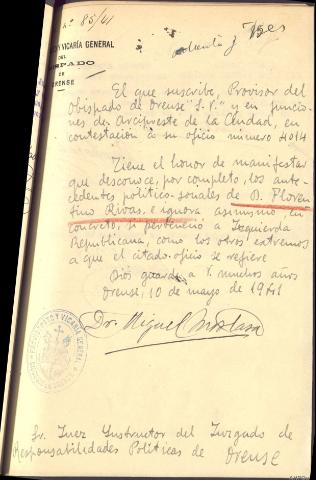 Nº 85/41
Y VICARÍA GENERAL
DEL
OBISPADO
DE
ORENSE
y tres
El que suscribe, Provisor del
Obispado de Orense "S.P." y en funcio-
nes de Arcipreste de la Ciudad, en
contestación a su oficio número 4014
Tiene el honor de manifestar
que desconoce, por completo, los ante-
cedentes político-sociales de D. Floren
tino Rivas, e ignora asimismo, en
concreto, si perteneció a Izquierda
Republicana, como los otros extremos
a que el citado oficio se refiere
Dios guarde a V. muchos años
Orense, 10 de mayo de 1941
Dr. Miguel
Y VICARÍA GENERAL
Sr. Juez Instructor del Juzgado de
Responsabilidades Políticas de Orense